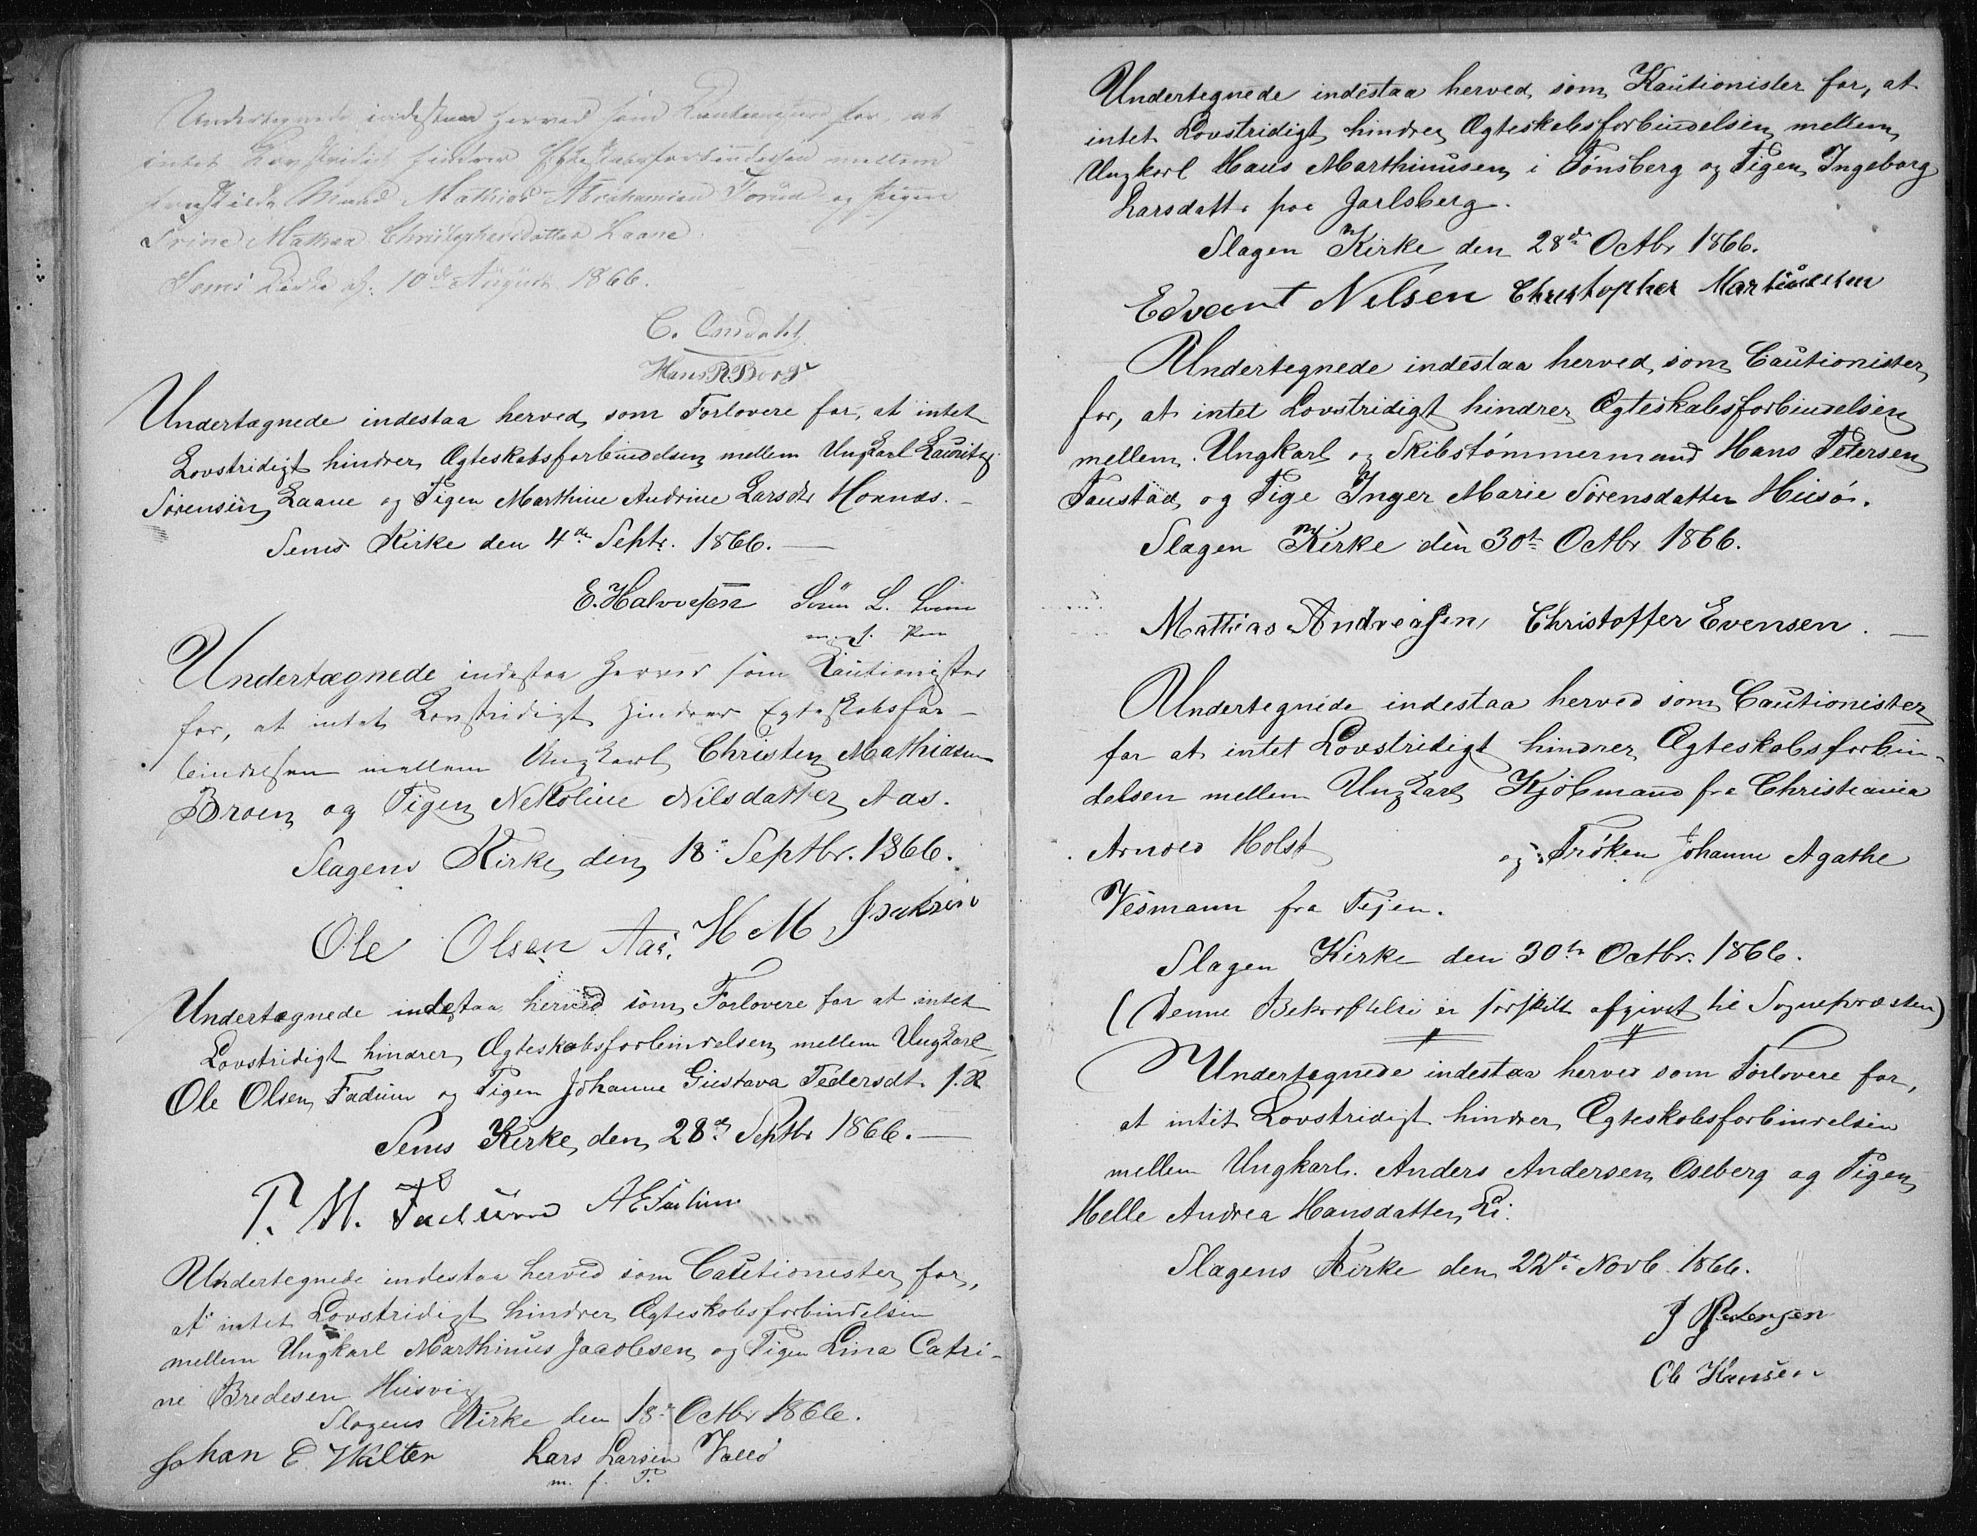 Undertegnede indestaar herved som Cautionister for, at
intet Lovstridigt hindrer Egteskabsforbindelsen mellem
fraskildt Mand Mathias Abrahamsen Torud og Pigen
Trine Mathea Christophersdatter Laane.
Sems Kirke d. 10d August 1866.
C. Omdahl
Hans R. Borg
Undertægnede indestaa herved som Forlovere for, at intet
Lovstridigt hindrer Ægteskabsforbindelsen mellem Ungkarl Lauritz
Sørensen Laane og Pigen Marthine Andrine Larsdtr Horends. -
Sems Kirke den 4de Septr. 1866. —
E. Halvorsen Søren L.
m. f. Pen
Undertægnede indestaa herved som Kautionister
for, at intet Lovstridigt hindrer Egteskabsfor-
bindelsen mellem Ungkarl Christen Mathiasen
Broen og Pigen Nekoline Nilsdatter Aas.
Slagens Kirke den 18. Septbr. 1866.
Ole Olsen Aas. H M Isaksen
Undertægnede indestaa herved som Forlovere for at intet
Lovstridigt hindrer Ægteskabsforbindelsen mellem Ungkarl
Ole Olsen Fadum og Pigen Johanne Gustava Pedersdt.
Sems Kirke den 28de Septbr 1866. —
P. M. Fadum A E Fadum
Undertegnede indestaa herved som Cautionister for,
at intet Lovstridigt hindrer Ægteskabsforbindelsen
mellem Ungkarl Marthinus Jacobsen og Pigen Lina Catri-
ne Bredesen Husvig
Slagens Kirke den 18. Octbr 1866.
Johan C. Walter Lars Larsen Vallø
m. f. P.
Undertegnede indestaa herved som Kautionister for, at
intet Lovstridigt hindrer Ægteskabsforbindelsen mellem
Ungkarl Hans Marthinusen i Tønsberg og Pigen Ingeborg
Larsdatter paa Jarlsberg.
Slagen Kirke den 28de Octbr 1866.
Edvart Nilsen Christopher Martinesen
Undertegnede indestaa herved som Cautionister
for, at intet Lovstridigt hindrer Ægteskabsforbindelsen
mellem Ungkarl og Skibstømmermand Hans Petersen
Taustad og Pige Inger Marie Sørensdatter Husø.
Slagen Kirke den 30te Octbr 1866.
Mathias Andreasen, Christoffer Evensen. —
Undertegnede indestaa herved som Cautionister
for at intet Lovstridigt hindrer Ægteskabsforbin-
delsen mellem Ungkarl Kjøbmand fra Christiania
Arnold Holst og Frøken Johanne Agathe
Vesmann fra Tejen.
Slagen Kirke den 30te Octbr. 1866.
(Denne Bekræftelse er særskilt afgivet til Sognepræsten)
Undertegnede indestaa herved som Forlovere for,
at intet Lovstridigt hindrer Ægteskabsforbindelsen
mellem Ungkarl. Anders Andersen Oseberg og Pigen
Helle Andrea Hansdatter Li.
Slagens Kirke den 22de Novb. 1866.
J Pedersen
Ole Hansen